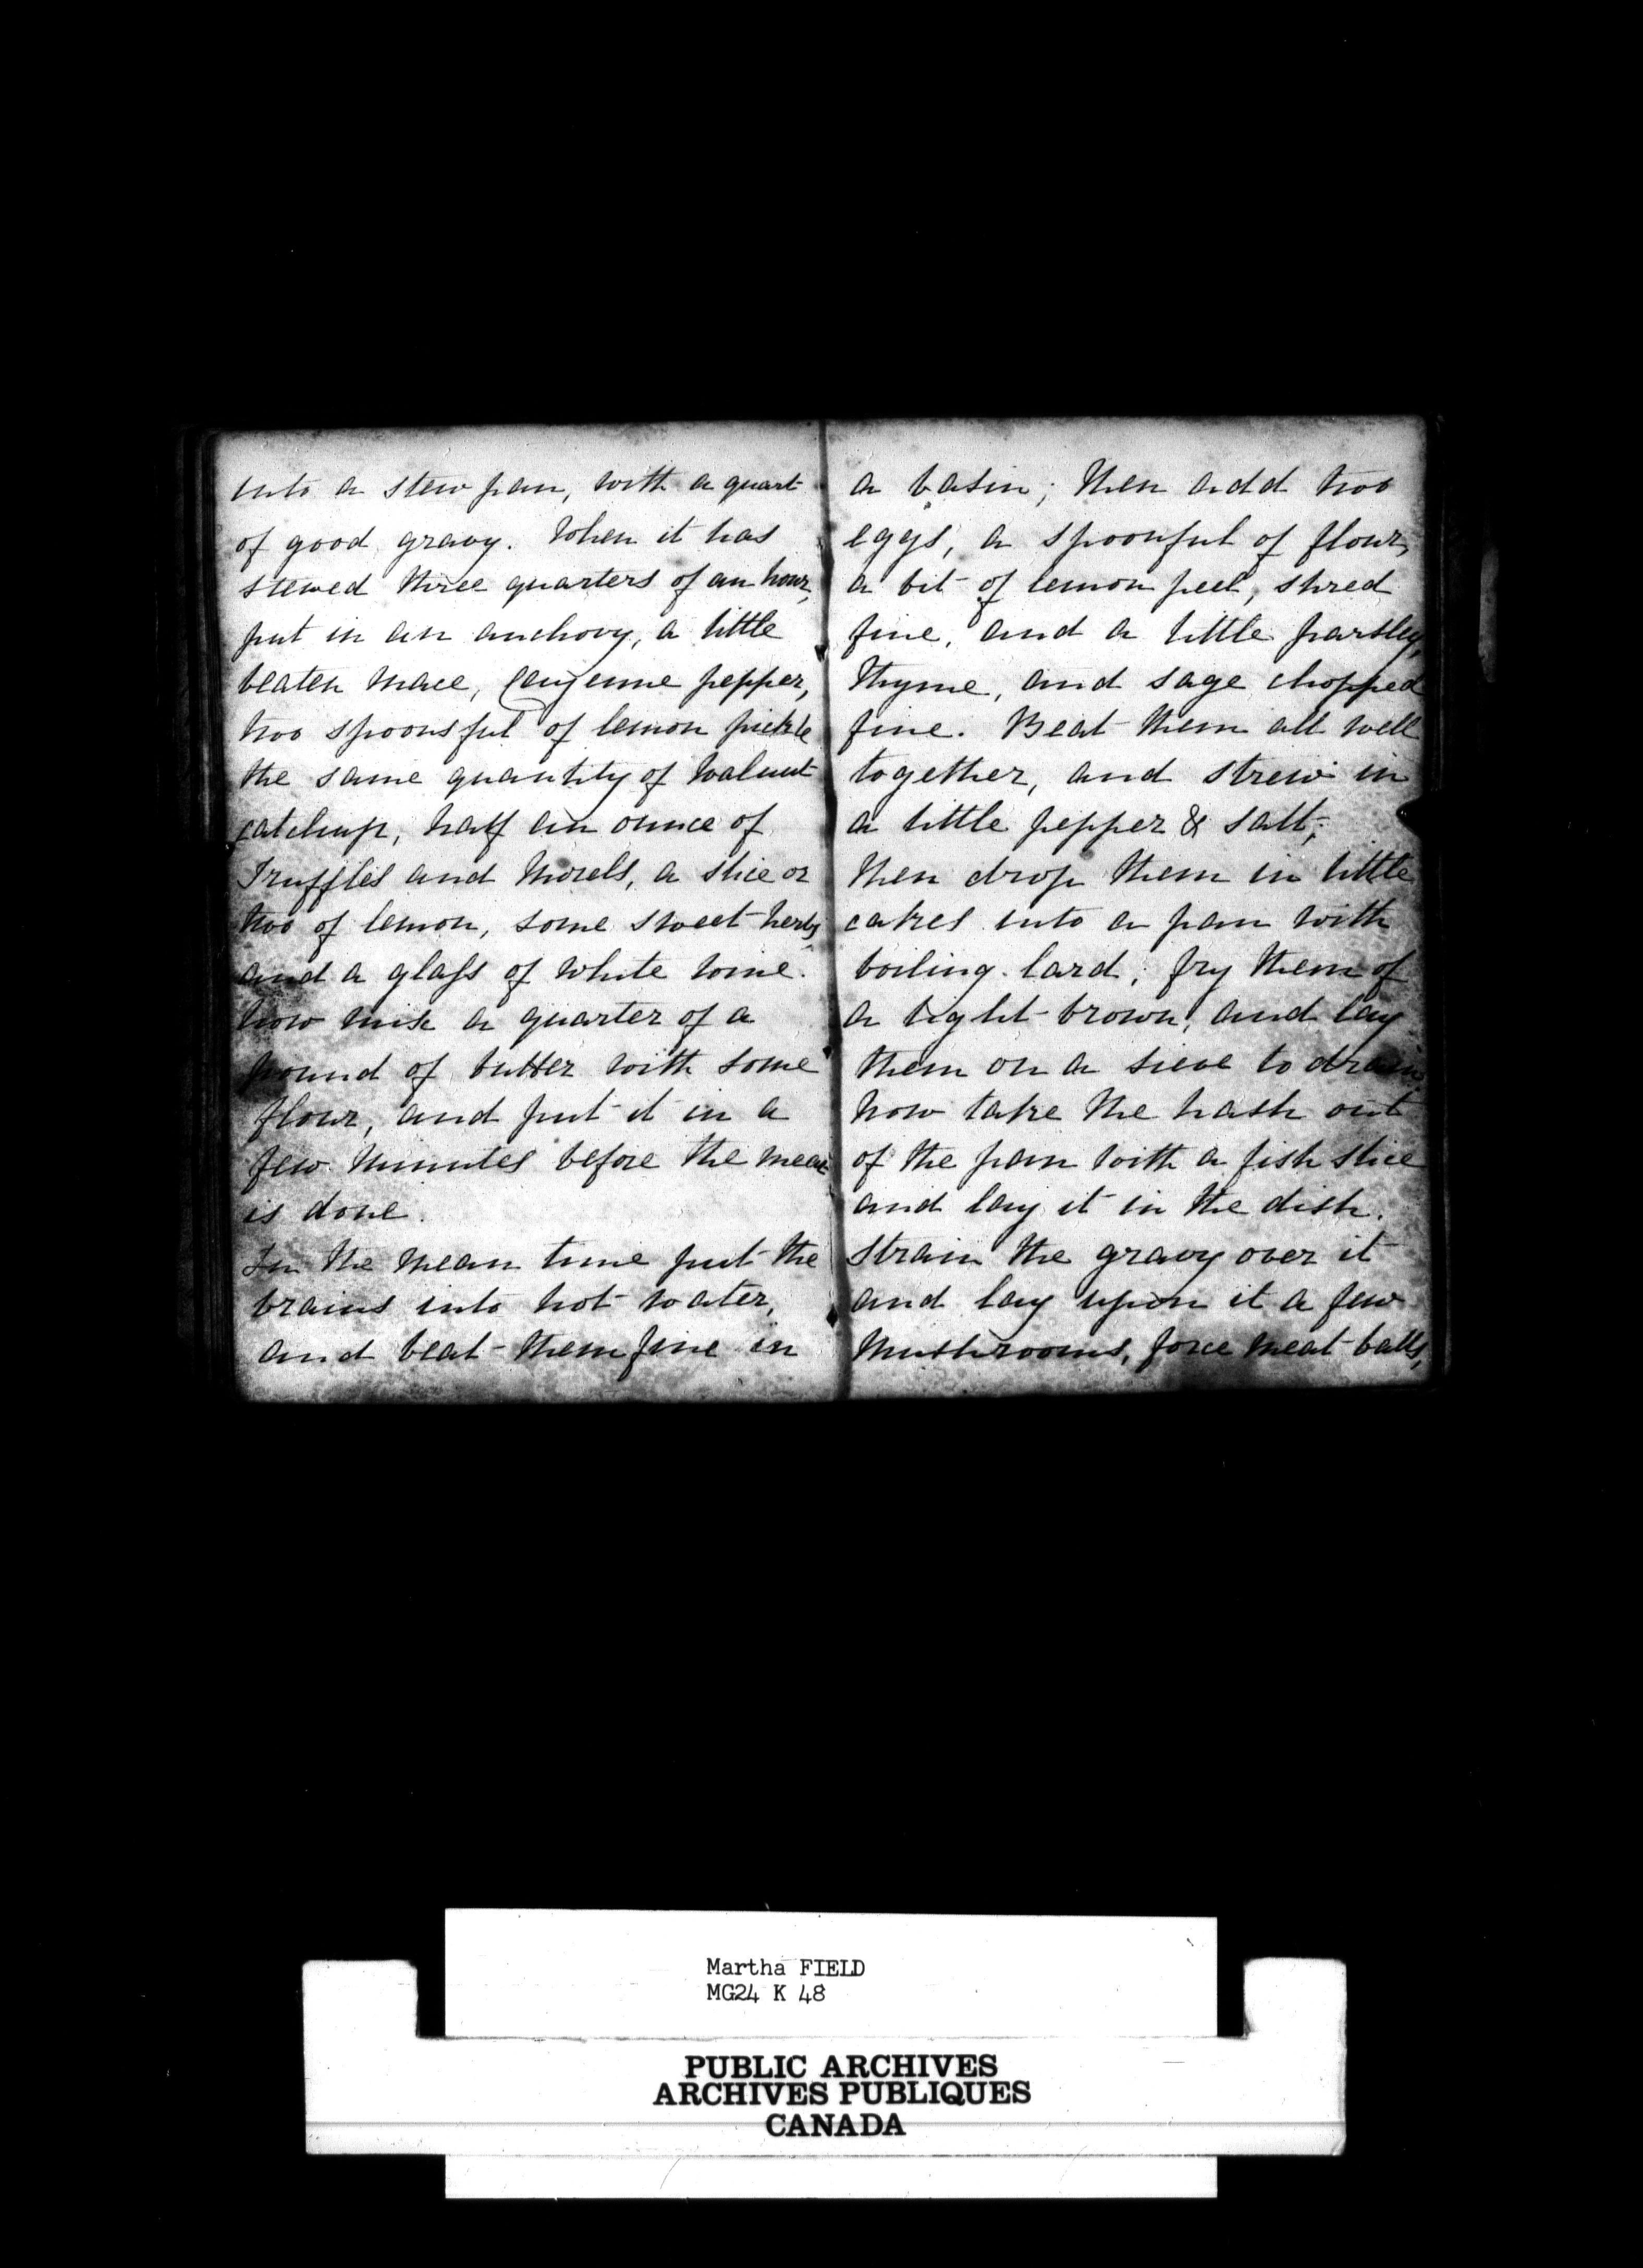 into a stew pan, with a quart
of good gravy. When it has
stewed three quarters of an hour,
put in an anchovy, a little
beaten mace, Cayenne pepper,
two spoonsful of lemon pickle
the same quantity of walnut
catchup, half an ounce of
Truffles and Morels, a slice or
two of lemon, some sweet herbs
and a glass of white wine.
now mix a quarter of a
pound of butter with some
flour, and put it in a
few minutes before the meat
is done.
In the mean time put the
brains into hot water,
and beat them fine in
a basin; then add two
eggs, a spoonful of flour,
a bit of lemon peel, shred
fine, and a little parsley,
thyme, and sage chopped
fine. Beat them all well
together, and strew in
a little pepper & salt;
then drop them in little
cakes into a pan with
boiling lard; fry them of
a light brown, and lay
them on a sieve to drain.
now take the hash out
of the pan with a fish slice
and lay it in the dish.
strain the gravy over it
and lay upon it a few
mushrooms, force meat balls,
Martha FIELD
MG24 K 48
PUBLIC ARCHIVES
ARCHIVES PUBLIQUES
CANADA